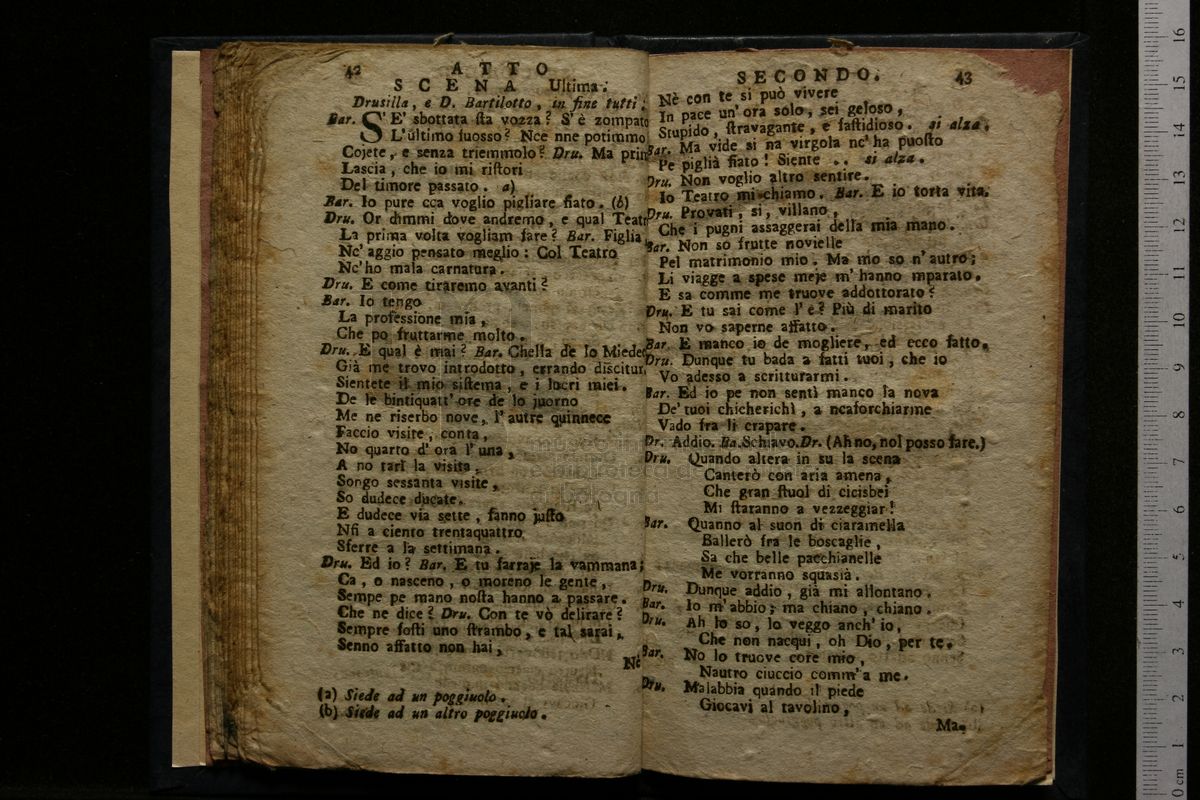 42 ATTO
SCENA Ultima.
Drusilla, e D. Bartilotto, in fine tutti.
Bar. S'E' sbottata sta vozza? S'è zompato
L'ultimo fuosso? Nce nne potimmo
Cojete, e senza triemmolo? Dru. Ma prin
Lascia, che io mi ristori
Del timore passato. a)
Bar. Io pure cca voglio pigliare fiato. (b)
Dru. Or dimmi dove andremo, e qual Teatr
La prima volta vogliam fare? Bar. Figlia
Nc'aggio pensato meglio: Col Teatro
Nc'ho mala carnatura.
Dru. E come tiraremo avanti?
Bar. Io tengo
La professione mia,
Che po fruttarme molto.
Dru. E qual è mai? Bar. Chella de lo Miede
Già me trovo introdotto, errando discitur
Sientete il mio sistema, e i lucri miei.
De le bintiquatt'ore de lo juorno
Me ne riserbo nove, l'autre quinnece
Faccio visite, conta,
No quarto d'ora l'una,
A no tarì la visita,
Songo sessanta visite,
So dudece ducate.
E dudece via sette, fanno justo
Nfi a ciento trentaquattro
Sferre a la settimana.
Dru. Ed io? Bar. E tu farraje la vammana;
Ca, o nasceno, o moreno le gente,
Sempe pe mano nosta hanno a passare.
Che ne dice? Dru. Con te vò delirare?
Sempre fosti uno strambo, e tal sarai,
Senno affatto non hai,
Nè
(a) Siede ad un poggiuolo.
(b) Siede ad un altro poggiuolo.
SECONDO. 43
Nè con te si può vivere
In pace un'ora solo, sei geloso,
Stupido, stravagante, e fastidioso. si alza.
Bar. Ma vide si na virgola nc'ha puosto
Pe piglià fiato! Siente .. si alza.
Dru. Non voglio altro sentire.
Io Teatro mi chiamo. Bar. E io torta vita.
Dru. Provati, si, villano,
Che i pugni assaggerai della mia mano.
Bar. Non so frutte novielle
Pel matrimonio mio. Ma mo so n'autro;
Li viagge a spese meje m'hanno mparato.
E sa comme me truove addottorato?
Dru. E tu sai come l'è? Più di marito
Non vo saperne affatto.
Bar. E manco io de mogliere, ed ecco fatto.
Dru. Dunque tu bada a fatti tuoi, che io
Vo adesso a scritturarmi.
Bar. Ed io pe non sentì manco la nova
De' tuoi chicherichì, a ncaforchiarme
Vado fra li crapare.
Dr. Addio. Ba. Schiavo. Dr. (Ah no, nol posso fare.)
Dru. Quando altera in su la scena
Canterò con aria amena,
Che gran stuol di cicisbei
Mi staranno a vezzeggiar!
Bar. Quanno al suon di ciaramella
Ballerò fra le boscaglie,
Sa che belle pacchianelle
Me vorranno squasià.
Dru. Dunque addio, già mi allontano.
Bar. Io m'abbio; ma chiano, chiano.
Dru. Ah lo so, lo veggo anch'io,
Che non nacqui, oh Dio, per te.
Bar. No lo truove core mio,
Nautro ciuccio comm'a me.
Dru. Malabbia quando il piede
Giocavi al tavolino,
Ma-